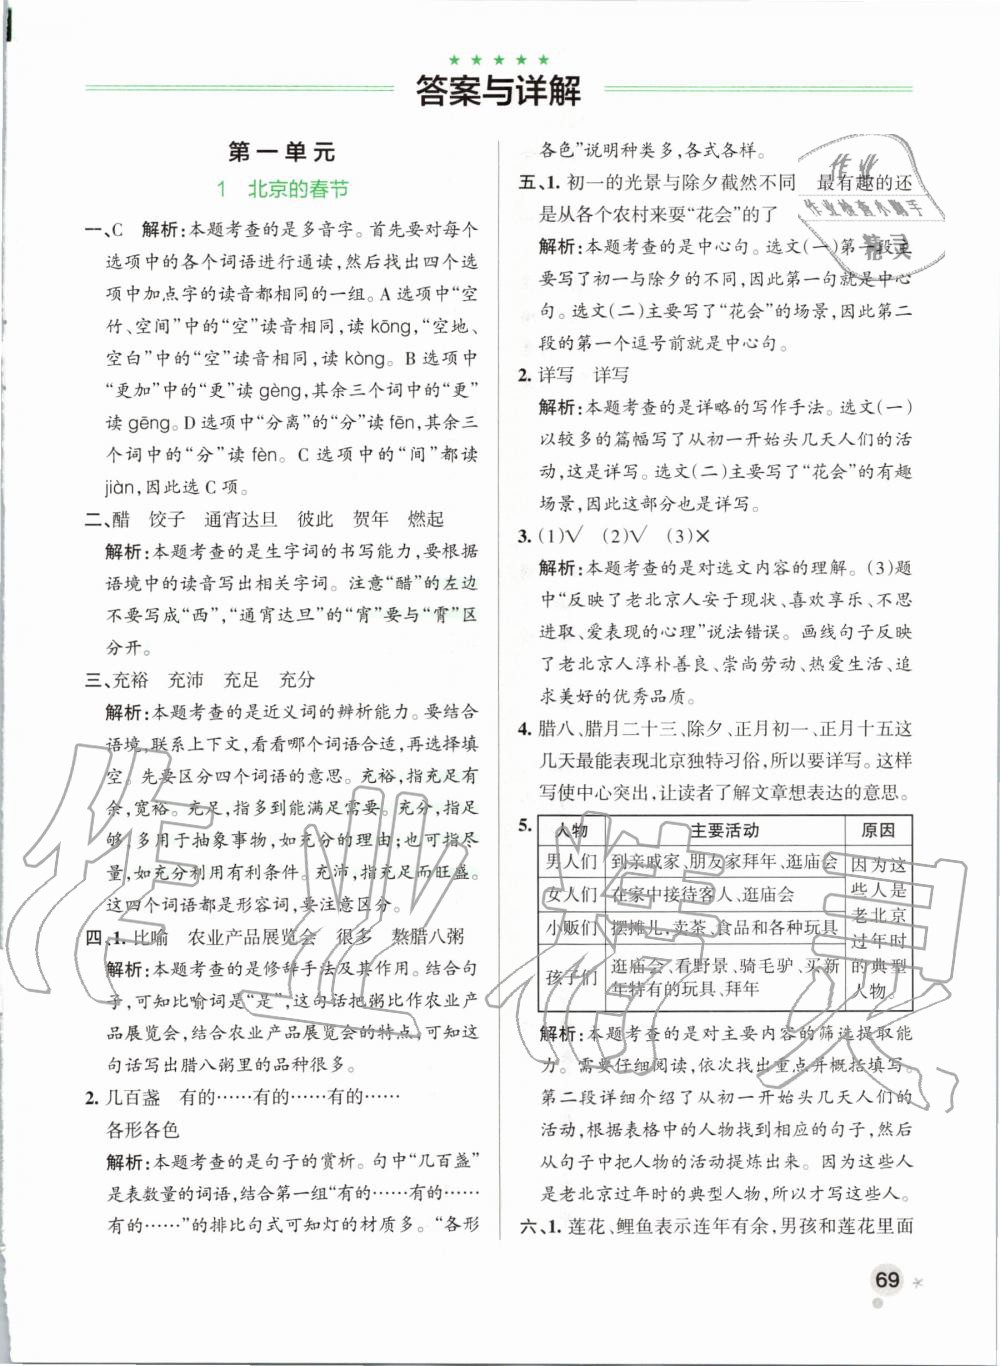 答案与详解
第一单元
1 北京的春节
一、C 解析:本题考查的是多音字。首先要对每个
选项中的各个词语进行通读,然后找出四个选
项中加点字的读音都相同的一组。A选项中“空
竹、空间”中的“空”读音相同,读kōng,“空地、
空白”中的“空”读音相同,读kòng。B选项中
“更加”中的“更”读gèng,其余三个词中的“更”
读gēng。D选项中“分离”的“分”读fēn,其余三
个词中的“分”读fèn。C选项中的“间”都读
jiàn,因此选C项。
二、醋 饺子 通宵达旦 彼此 贺年 燃起
解析:本题考查的是生字词的书写能力,要根据
语境中的读音写出相关字词。注意“醋”的左边
不要写成“西”,“通宵达旦”的“宵”要与“霄”区
分开。
三、充裕 充沛 充足 充分
解析:本题考查的是近义词的辨析能力。要结合
语境,联系上下文,看看哪个词语合适,再选择填
空。先要区分四个词语的意思。充裕,指充足有
余,宽裕。充足,指多到能满足需要。充分,指足
够,多用于抽象事物,如充分的理由;也可指尽
量,如充分利用有利条件。充沛,指充足而旺盛。
这四个词语都是形容词,要注意区分。
四、1. 比喻 农业产品展览会 很多 熬腊八粥
解析:本题考查的是修辞手法及其作用。结合句
子,可知比喻词是“是”,这句话把粥比作农业产
品展览会,结合农业产品展览会的特点,可知这
句话写出腊八粥里的品种很多。
2. 几百盏 有的……有的……有的……
各形各色
解析:本题考查的是句子的赏析。句中“几百盏”
是表数量的词语,结合第一组“有的……有的……
有的……”的排比句式可知灯的材质多。“各形
各色”说明种类多,各式各样。
五、1. 初一的光景与除夕截然不同 最有趣的还
是从各个农村来耍“花会”的了
解析:本题考查的是中心句。选文(一)第一段主
要写了初一与除夕的不同,因此第一句就是中心
句。选文(二)主要写了“花会”的场景,因此第二
段的第一个逗号前就是中心句。
2. 详写 详写
解析:本题考查的是详略的写作手法。选文(一)
以较多的篇幅写了从初一开始头几天人们的活
动,这是详写。选文(二)主要写了“花会”的有趣
场景,因此这部分也是详写。
3. (1)√ (2)√ (3)×
解析:本题考查的是对选文内容的理解。(3)题
中“反映了老北京人安于现状、喜欢享乐、不思
进取、爱表现的心理”说法错误。画线句子反映
了老北京人淳朴善良、崇尚劳动、热爱生活、追
求美好的优秀品质。
4. 腊八、腊月二十三、除夕、正月初一、正月十五这
几天最能表现北京独特习俗,所以要详写。这样
写使中心突出,让读者了解文章想表达的意思。
5. 人物 主要活动 原因
男人们 到亲戚家、朋友家拜年、逛庙会 因为这
女人们 在家中接待客人、逛庙会 些人是
小贩们 摆摊儿、卖茶、食品和各种玩具 老北京
过年时
孩子们 逛庙会、看野景、骑毛驴、买新 的典型
年特有的玩具、拜年 人物。
解析:本题考查的是对主要内容的筛选提取能
力。需要仔细阅读,依次找出重点并概括填写。
第二段详细介绍了从初一开始头几天人们的活
动,根据表格中的人物找到相应的句子,然后
从句子中把人物的活动提炼出来。因为这些人
是老北京过年时的典型人物,所以写这些人。
六、1. 莲花、鲤鱼表示连年有余,男孩和莲花里面
69
作业
作业检查小助手
精灵
作业精灵